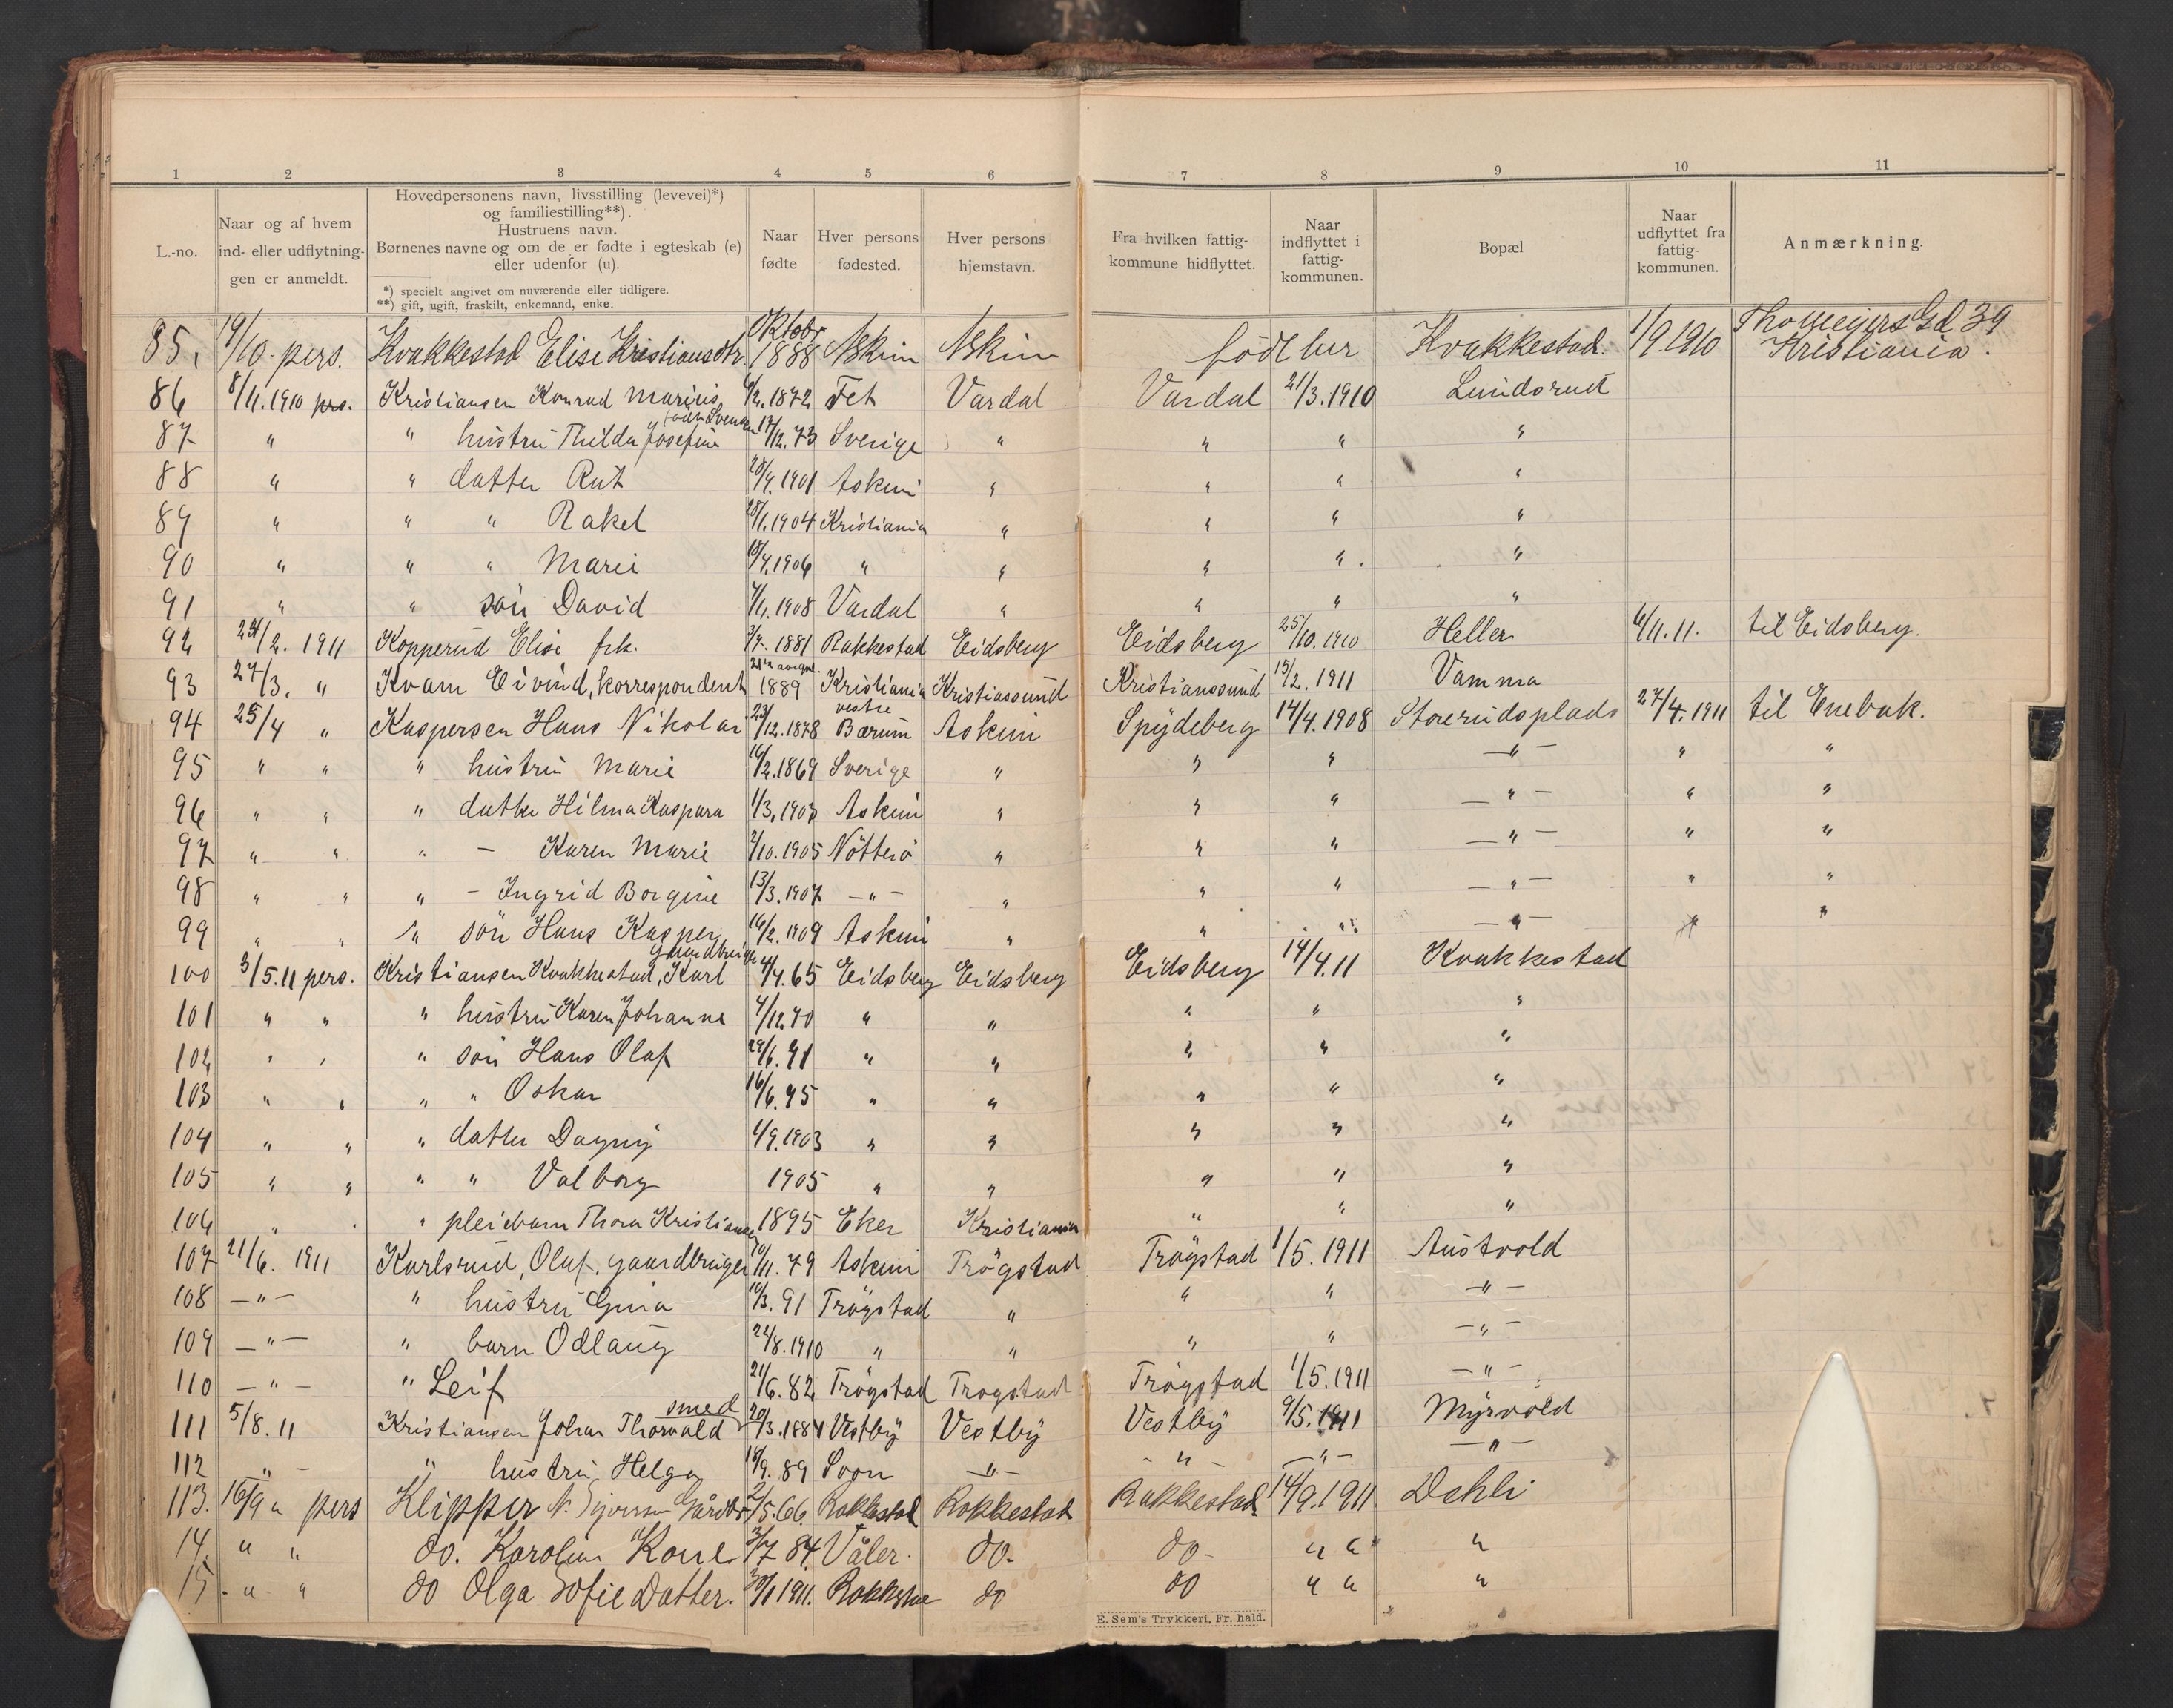 1 2 3 4 5 6 7 8 9 10 11
L.-no.
Naar og af hvem
ind- eller udflytnin-
gen er anmeldt.
Hovedpersonens navn, livsstilling (levevei)*)
og familiestilling**).
Hustruens navn.
Børnenes navne og om de er fødte i egteskab (e)
eller udenfor (u).
*) specielt angivet om nuværende eller tidligere.
**) gift, ugift, fraskilt, enkemand, enke.
Naar
fødte
Hver persons
fødested.
Hver persons
hjemstavn.
Fra hvilken fattig-
kommune hidflyttet.
Naar
indflyttet i
fattig-
kommunen.
Bopæl
Naar
udflyttet fra
fattig-
kommunen.
Anmærkning.
85. 19/10. pers. Kvakkestad Elise Kristiansdtr. Oktobr 1888 Askim Askim født her Kvakkestad. 1/9.1910 Thomeyers Gd 39 Kristiania.
86 8/11.1910 prs. Kristiansen Konrad Marius 6/2.1872 Fet Vardal Vardal 21/3.1910 Lundsrud
87 " " hustru Thilda Josefine født Svensen 17/12.73 Sverige " " " "
88 " " datter Rut 28/9.1901 Askim " " " "
89 " " " Rakel 28/1.1904 Kristiania " " " "
90 " " " Marie 18/4.1906 " " " " "
91 " " søn David 7/11.1908 Vardal " " " "
92 24/2. 1911 Kopperud Elise frk. 3/7. 1881 Rakkestad Eidsberg Eidsberg 25/10.1910 Heller 6/11.11. til Eidsberg.
93 27/3. " Kvam Eivind, korrespondent 21de august 1889 Kristiania Kristiansund Kristianssund 15/2.1911 Vamma
94 25/4 " Kaspersen Hans Nikolai 23/12.1878 vestre Bærum Askim Spydeberg 14/4.1908 Storerudsplads 27/4.1911 til Enebak.
95 " " " hustru Marie 16/2.1869 Sverige " " " —"— " "
96 " " " datter Hilma Kaspara 1/3.1903 Askim " " " —"— " "
97 " " " — Karen Marie 2/10.1905 Nötterö " " " —"— " "
98 " " " — Ingrid Borgine 13/3.1907 —"— " " " —"— " "
99 " " " søn Hans Kasper 16/2.1909 Askim " " " —"— " "
100 3/5.11 pers. Kristiansen Kvakkestad, Karl gaardbruger 4/4.65 Eidsberg Eidsberg Eidsberg 14/4.11 Kvakkestad
101 " " " hustru Karen Johanne 4/12.70 " " " " "
102 " " " søn Hans Olaf 29/6.91 " " " " "
103 " " " " Oskar 16/6.95 " " " " "
104 " " " datter Dagny 4/9.1903 " " " " "
105 " " " " Valborg 1905 " " " " "
106 " " " pleiebarn Thora Kristiansen 1895 Eker Kristiania " " "
107 21/6. 1911 Karlsrud, Olaf, gaardbruger 10/11.79 Askim Trögstad Trögstad 1/5.1911 Austvold
108 —"— " hustru Gina 10/3.91 Trögstad " " " —"—
109 —"— " barn Odlaug 22/8.1910 " " " " —"—
110 —"— " Leif 21/6.82 Trögstad Trogstad Trögstad 1/5.1911 —"—
111 5/8.11 Kristiansen Johan Thorvald smed 20/3.1884 Vestby Vestby Vestby 9/5.1911 Myrvold
112 —"— " hustru Helga 18/9.89 Soon —"— —"— —"— —"—
113. 16/9 " pers Klipper N. Gårdbr 2/5.66. Rakkestad Rakkestad Rakkestad 14/9.1911 Dehli
14 " " do. Karoline Kone 3/7 84 Våler. do. do- " " "
15 - " " do Olga Sofie Datter. 30/1 1911. Rakkstad do do " " "
E. Sem's Trykkeri, Fr. hald.